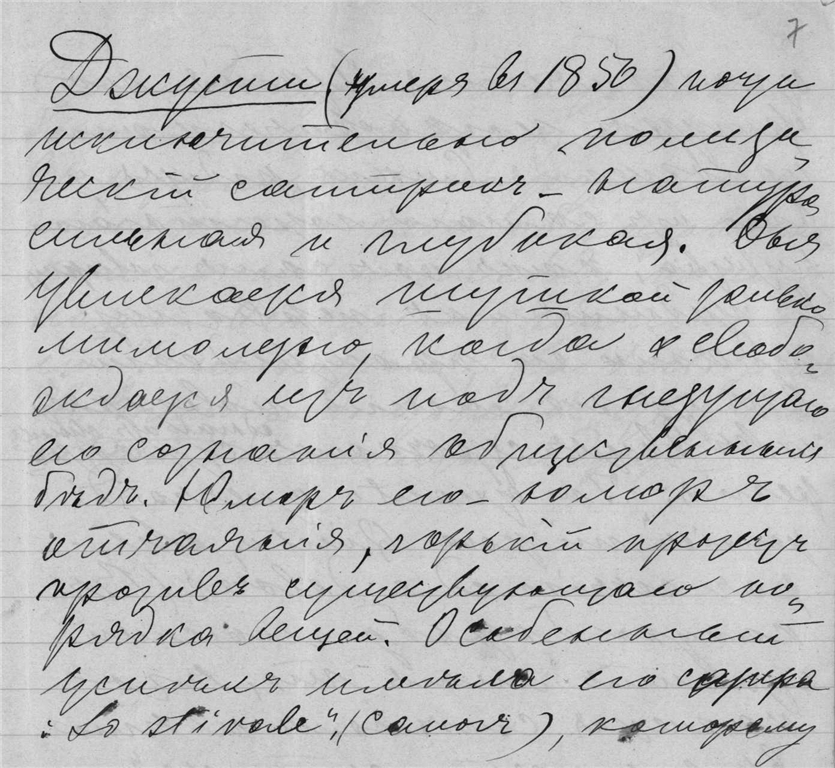 7
Джусти (умеръ въ 1850) почти
исключительно полити-
ческій сатирикъ – натура
сильная и глубокая. Онъ
увлекается шуткой только
мимолетно, когда освобо-
ждается изъ подъ гнетущаго
его сознанія общественныхъ
бѣдъ. Юморъ его – юморъ
отчаянія, горькій протестъ
противъ существующаго по-
рядка вещей. Особенный
успѣхъ имѣла его сатира
„Lo stivale“, (сапогъ), которому